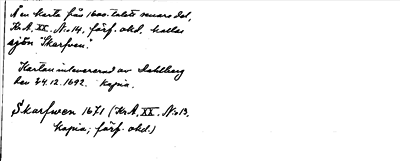 Å en karta från 1600-talets senare del,
Kr.A. XX. N:o 14, förf. okd. kallas
sjön "Skarfven".
Kartan inlevererad av Dahlberg
den 24.12.1692. Kopia.
Skarfwen 1671 (Kr.A. XX. N:o 13,
kopia; förf. okd.)